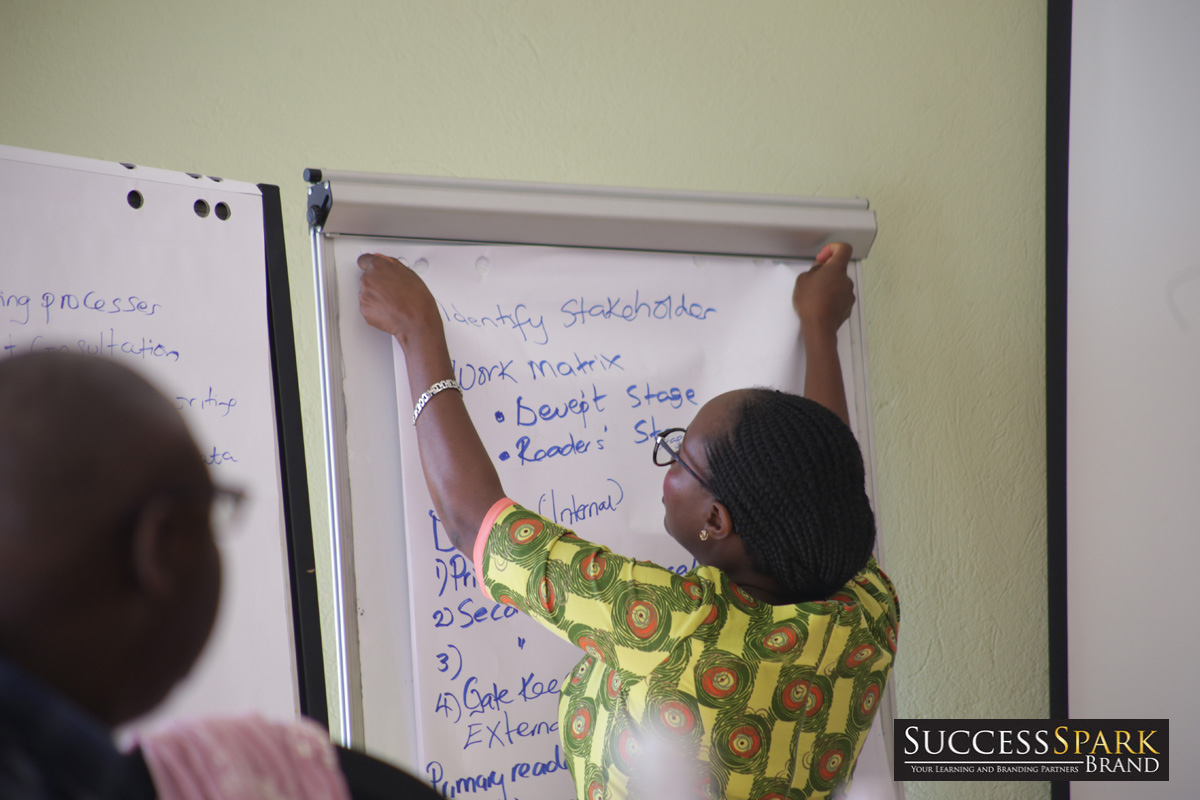 ing processes
t Consultation
riting
ata
Identify Stakeholder
Work Matrix
• Devep't Stage
• Readers' St
(Internal)
1) Pri
2) Seco
3) "
4) Gate Kee
Externa
Primary read
SUCCESSSPARK
BRAND
YOUR LEARNING AND BRANDING PARTNERS